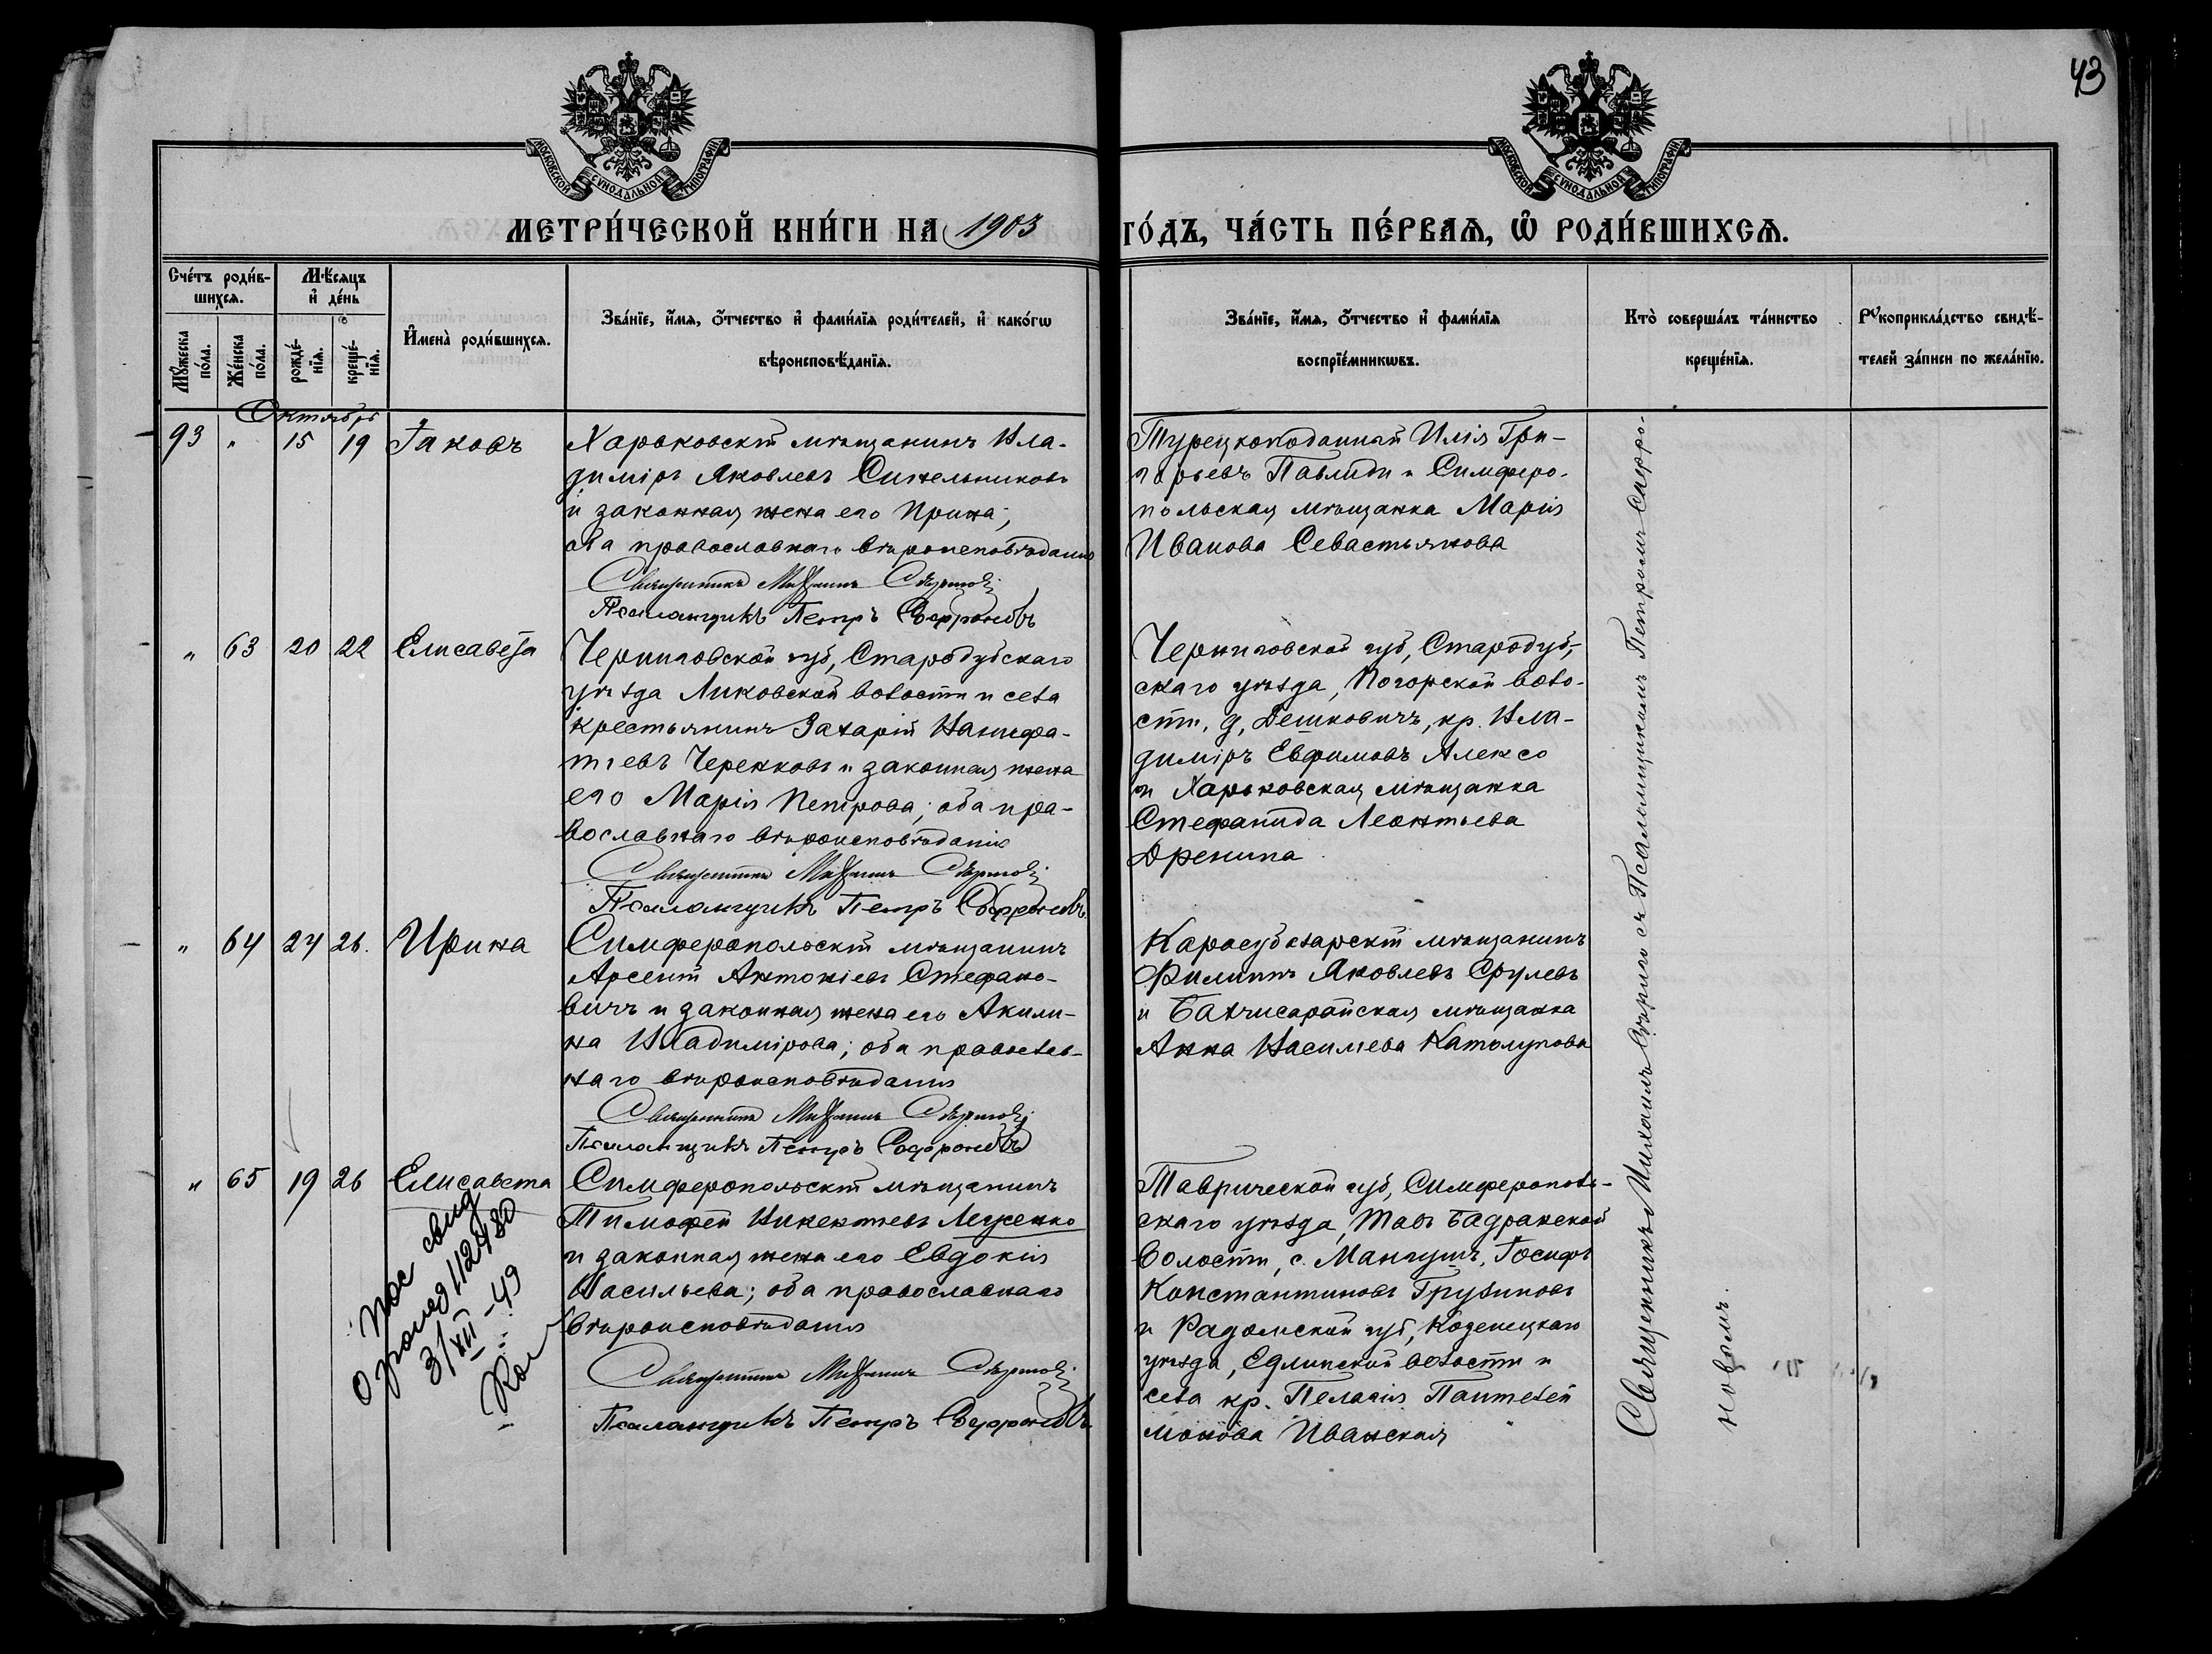 43
МОСКОВСКОЙ СѴНОДАЛЬНОЙ ТИПОГРАФІИ
МОСКОВСКОЙ СѴНОДАЛЬНОЙ ТИПОГРАФІИ
МЕТРИ́ЧЕСКОЙ КНИ́ГИ НА 1903 ГО́ДЪ, ЧА́СТЬ ПЕ́РВАѦ, Ѡ҆ РОДИ́ВШИХСѦ.
Сче́тъ роди́в-
шихсѧ.
Мꙋ́жеска
по́ла.
Же́нска
по́ла.
Мѣ́сяцъ
и҆ де́нь
рожде́-
нїѧ.
креще́-
нїѧ.
И҆мена̀ роди́вшихсѧ.
Зва́нїе, и҆́мѧ, ѻ҆́тчество и҆ фами́лїѧ роди́телей, и҆ како́гѡ
вѣроисповѣ́данїѧ.
Зва́нїе, и҆́мѧ, ѻ҆́тчество и҆ фами́лїѧ
воспрїе́мникѡвъ.
Кто̀ соверша́лъ та́инство
креще́нїѧ.
Рꙋкоприкла́дство свидѣ́-
телей за́писи по жела́нїю.
Октябрь
93 " 15 19 Іаковъ
Харьковскій мѣщанинъ Вла-
диміръ Яковлевъ Синельниковъ
и законная жена его Ирина;
оба православнаго вѣроисповѣданія
Священникъ Михаилъ
Псаломщикъ Петръ Софроновъ
Турецкоподанный Илія Гри-
горьевъ Павлиди и Симферо-
польская мѣщанка Марія
Иванова Севастьянова
" 63 20 22 Елисавета
Черниговской губ, Стародубскаго
уѣзда Лыковской волости и села
крестьянинъ Захарій Нанифа-
тіевъ Черенковъ и законная жена
его Марія Петрова; оба пра-
вославнаго вѣроисповѣданія
Священникъ Михаилъ
Псаломщикъ Петръ Софроновъ
Черниговской губ, Стародуб-
скаго уѣзда, Погорской воло-
сти, д, Дешковичъ, кр. Вла-
диміръ Евфимовъ Алексо
и Харьковская мѣщанка
Стефанида Леонтьева
Дренина
" 64 24 26. Ирина
Симферопольскій мѣщанинъ
Арсеній Антоніевъ Стефано-
вичъ и законная жена его Акили-
на Владимірова; оба православ-
наго вѣроисповѣданія
Священникъ Михаилъ
Псаломщикъ Петръ Софроновъ
Карасубазарскій мѣщанинъ
Филиппъ Яковлевъ Срулевъ
и Бахчисарайская мѣщанка
Анна Васильева Католупова
" 65 19 26 Елисавета
Симферопольскій мѣщанинъ
Тимофей Викентіевъ Леуенко
и законная жена его Евдокія
Васильева; оба православнаго
вѣроисповѣданія
Священникъ Михаилъ
Псаломщикъ Петръ Софроновъ
Таврической губ, Симферополь-
скаго уѣзда, Табъ Бадракской
волости, с. Мангушъ, Іосифъ
Константиновъ Грузиновъ
и Радомской губ, Козенецкаго
уѣзда, волости и
села кр. Пелагія Пантелей
монова Иванская
пос свид
о рожд 112480
3/XII-49
Священникъ Михаилъ съ Псаломщикомъ Петромъ Софро-
новымъ.